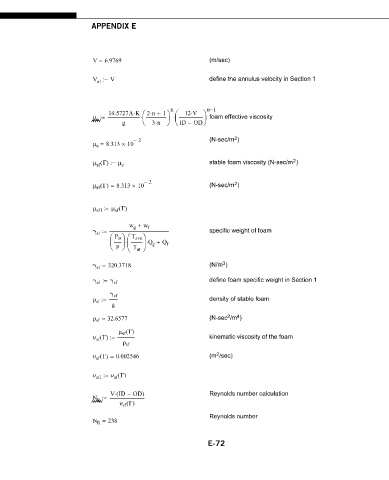 APPENDIX E
V = 6.9769 (m/sec)
V_a1 := V define the annulus velocity in Section 1
μ_e := 14.5727A·K / g · (2·n + 1 / 3·n)^n · (12·V / ID − OD)^n−1 foam effective viscosity
μ_e = 8.313 × 10^−2 (N-sec/m²)
μ_sf(Γ) := μ_e stable foam viscosity (N-sec/m²)
μ_sf(Γ) = 8.313 × 10^−2 (N-sec/m²)
μ_sf1 := μ_sf(Γ)
γ_sf := w_g + w_f / (P_at / P)·(T_ave / T_at)·Q_g + Q_f specific weight of foam
γ_sf = 320.3718 (N/m³)
γ_sf1 := γ_sf define foam specific weight in Section 1
ρ_sf := γ_sf / g density of stable foam
ρ_sf = 32.6577 (N-sec²/m⁴)
ν_sf(Γ) := μ_sf(Γ) / ρ_sf kinematic viscosity of the foam
ν_sf(Γ) = 0.002546 (m²/sec)
ν_sf1 := ν_sf(Γ)
N_R := V·(ID − OD) / ν_sf(Γ) Reynolds number calculation
N_R = 238 Reynolds number
E-72